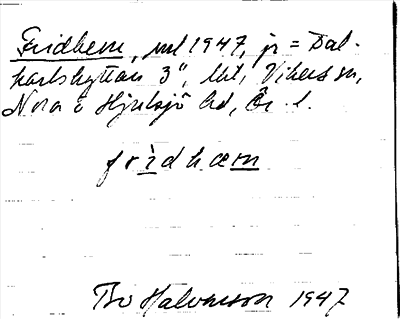 Fridhem, nd 1947, jr = Dal-
karlshyttan 3", lht, Vikers sn,
Nora o Hjulsjö hd, Ör. l.
frìdhæm
Bo Halvarsson 1947